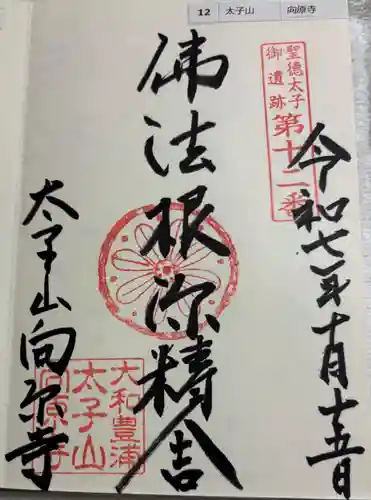 12 太子山 向原寺
聖徳太子
御遺跡
第十二番
令和七年十月十五日
佛法根源精舎
大和豊浦
太子山
向原寺
太子山向原寺